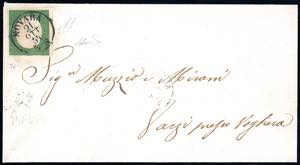 NOVARA
21
Sig.r Muzzio e Mirani
Varzi presso Voghera